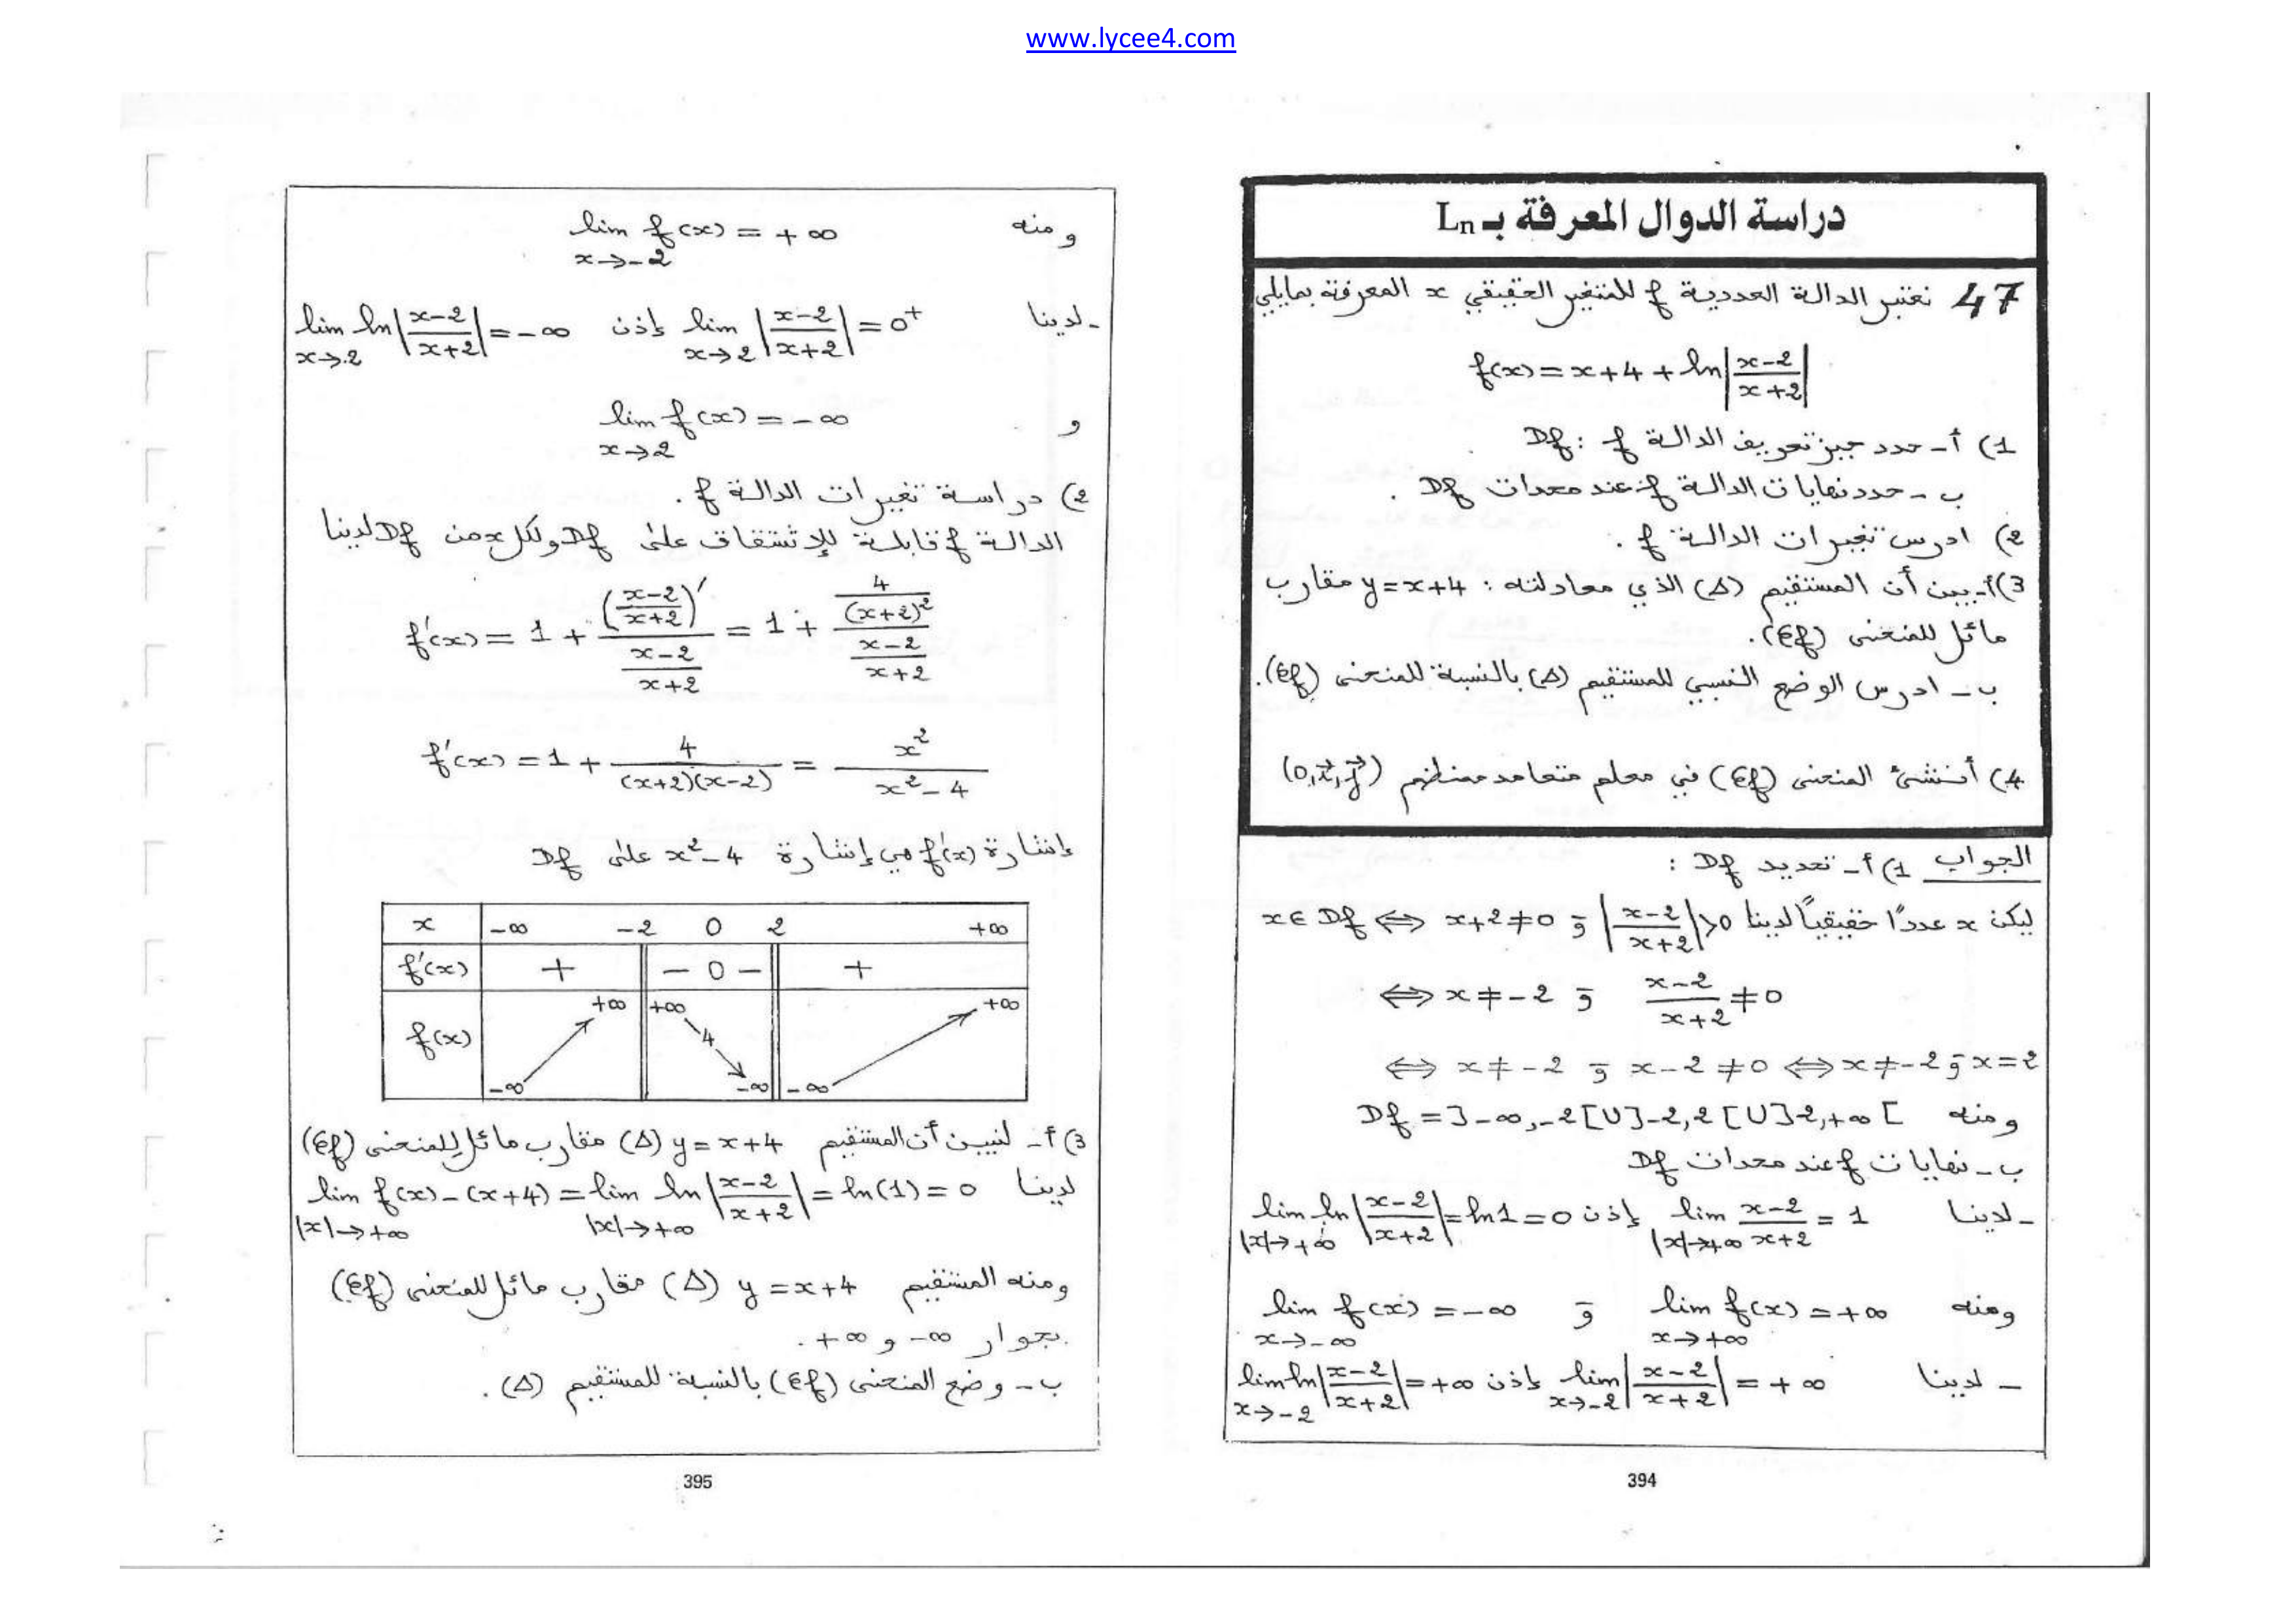 www.lycee4.com
دراسة الدوال المعرفة بـ Ln
47 نعتبر الدالة العددية f للمتغير الحقيقي x المعرفة بمايلي
f(x) = x+4 + ln|(x-2)/(x+2)|
1) أ- حدد حيز تعريف الدالة f : Df
ب - حدد نهايات الدالة f عند محدات Df .
2) ادرس تغيرات الدالة f .
3) أ- بين أن المستقيم (Δ) الذي معادلته : y = x+4 مقارب
مائل للمنحنى (Cf).
ب - ادرس الوضع النسبي للمستقيم (Δ) بالنسبة للمنحنى (Cf).
4) أنشئ المنحنى (Cf) في معلم متعامد ممنظم (O,i⃗,j⃗)
الجواب 1) أ - تحديد Df :
ليكن x عددًا حقيقياً لدينا x∈Df ⇔ x+2≠0 و |(x-2)/(x+2)|>0
⇔ x≠-2 و (x-2)/(x+2) ≠0
⇔ x≠-2 و x-2≠0 ⇔ x≠-2 و x=2
ومنه Df = ]-∞,-2[U]-2,2[U]2,+∞[
ب - نهايات f عند محدات Df
- لدينا lim |x|→+∞ (x-2)/(x+2) = 1 إذن lim |x|→+∞ ln|(x-2)/(x+2)| = ln1 = 0
ومنه lim x→+∞ f(x) = +∞ و lim x→-∞ f(x) = -∞
- لدينا lim x→-2 |(x-2)/(x+2)| = +∞ إذن lim x→-2 ln|(x-2)/(x+2)| = +∞
394
ومنه lim x→-2 f(x) = +∞
- لدينا lim x→2 |(x-2)/(x+2)| = 0⁺ إذن lim x→2 ln|(x-2)/(x+2)| = -∞
و lim x→2 f(x) = -∞
2) دراسة تغيرات الدالة f .
الدالة f قابلة للإشتقاق على Df ولكل x من Df لدينا
f'(x) = 1 + ((x-2)/(x+2))' / ((x-2)/(x+2)) = 1 + (4/(x+2)²) / ((x-2)/(x+2))
f'(x) = 1 + 4/((x+2)(x-2)) = x²/(x²-4)
إشارة f'(x) هي إشارة x²-4 على Df
x -∞ -2 0 2 +∞
f'(x) + - 0 - +
f(x) -∞ +∞ +∞ 4 -∞ -∞ +∞
3) أ - لنبين أن المستقيم y = x+4 (Δ) مقارب مائل للمنحنى (Cf)
لدينا lim |x|→+∞ f(x) - (x+4) = lim |x|→+∞ ln|(x-2)/(x+2)| = ln(1) = 0
ومنه المستقيم y = x+4 (Δ) مقارب مائل للمنحنى (Cf)
بجوار -∞ و +∞ .
ب - وضع المنحنى (Cf) بالنسبة للمستقيم (Δ) .
395